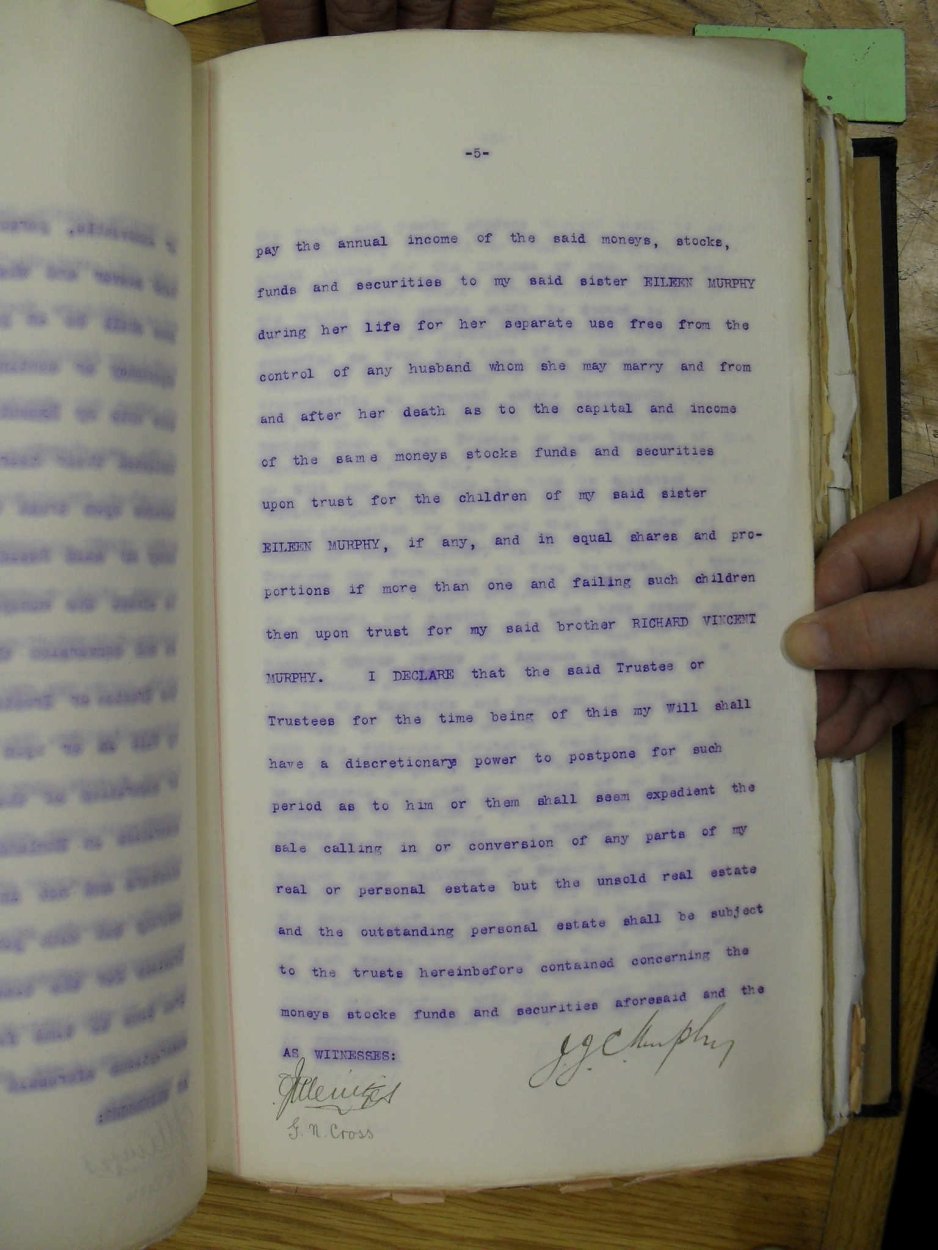 -5-
pay the annual income of the said moneys, stocks,
funds and securities to my said sister EILEEN MURPHY
during her life for her separate use free from the
control of any husband whom she may marry and from
and after her death as to the capital and income
of the same moneys stocks funds and securities
upon trust for the children of my said sister
EILEEN MURPHY, if any, and in equal shares and pro-
portions if more than one and failing such children
then upon trust for my said brother RICHARD VINCENT
MURPHY. I DECLARE that the said Trustee or
Trustees for the time being of this my Will shall
have a discretionary power to postpone for such
period as to him or them shall seem expedient the
sale calling in or conversion of any parts of my
real or personal estate but the unsold real estate
and the outstanding personal estate shall be subject
to the trusts hereinbefore contained concerning the
moneys stocks funds and securities aforesaid and the
AS WITNESSES:
J.G.C Murphy
G. N. Cross